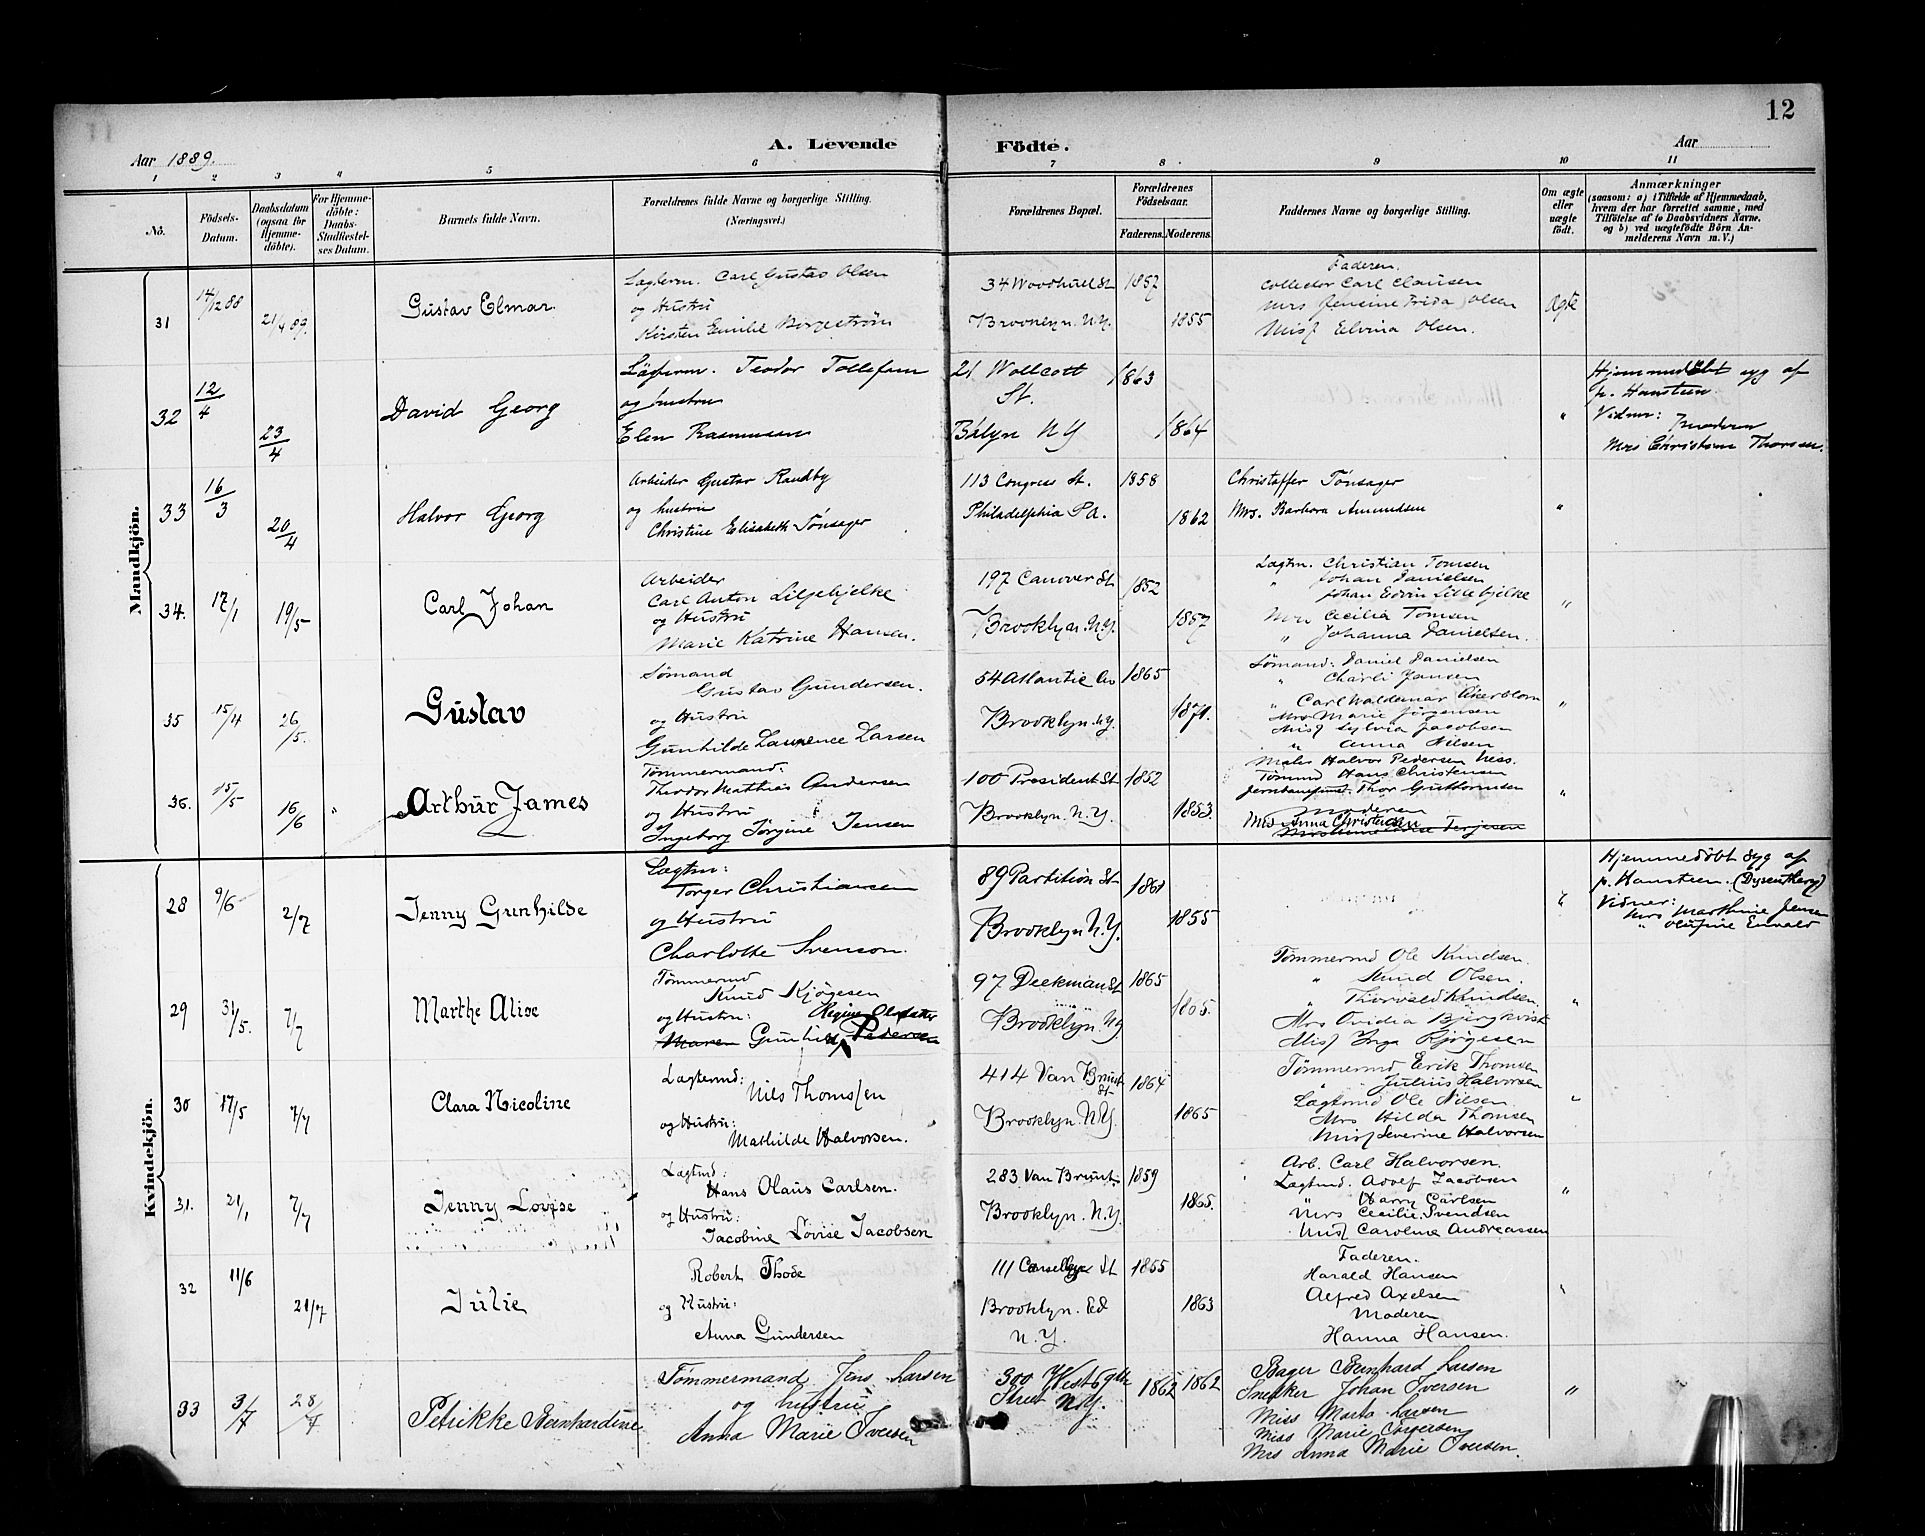 12
Aar 1889.
A. Levende Födte.
Aar
1 2 3 4 5 6 7 8 9 10 11
No.
Födsels-Datum.
Daabsdatum (ogsaa for Hjemme-döbte).
For Hjemme-döbte: Daabs-Stadfæstel-ses Datum.
Barnets fulde Navn.
Forældrenes fulde Navne og borgerlige Stilling. (Næringsvei.)
Forældrenes Bopæl.
Forældrenes Födselsaar.
Faderens. Moderens.
Faddernes Navne og borgerlige Stilling.
Om ægte eller uægte födt.
Anmærkninger
(saasom: a) i Tilfælde af Hjemmedaab, hvem der har forrettet samme, med Tilföielse af to Daabsvidners Navne, og b) ved uægtefödte Börn An-melderens Navn m. V.)
Mandkjön.
31 14/12 88 21/4 89. Gustav Elmar
Lagterm. Carl Gustav Olsen
og Hustru
Kirsten Emilie Borgeström
34 Woodhull St
Brooklyn. N.Y.
1857 1855
Faderen.
Collector Carl Clausen
Mrs Jensine Frida Olsen
Miss Elvina Olsen.
Ægte
32 12/4 23/4 David Georg
Teodor Tollefsen
og hustru
Elen Rasmussen
21 Wollcott St.
Bklyn N Y
1863 1864
"
Hjemmedöbt syg af
p. Hansteen.
Vidner: Moderen
Mrs Christine Thorsen.
33 16/3 20/4 Halvor Georg
Arbeider Gustav Randby
og hustru
Christine Elisabeth Tønsager
113 Congress St.
Philadelphia Pa.
1858 1862
Christoffer Tønsager
Mrs. Barbara Amundsen
"
34. 17/1 19/5 Carl Johan
Arbeider
Carl Anton Liljehjelke
og Hustru
Marie Katrine Hansen.
197 Canover St
Brooklyn. N.Y.
1852 1857
Lagtm. Christian Tomsen
" Johan Danielsen
Johan Edvin Lillehjelke
Mrs Cecilia Tomsen
" Johanna Danielsen.
"
35 15/4 26/5. Gustav
Sømand
Gustav Gundersen.
og Hustru
Gunhilde Laurence Larsen
54 Atlantic Av
Brooklyn. N.Y.
1865 1871.
Sømand: Daniel Danielsen
" Charli Jansen
" Carl Waldemar Åkerblom
Mrs Marie Jørgensen
Miss Sylvia Jacobsen
" Anna Nilsen
"
36. 15/5 16/6 " Arthur James
Tømmermand:
Theodor Mathias Andersen
og Hustru
Ingeborg Jørgine Jensen
100 President St
Brooklyn. N.Y.
1852 1853.
Maler Halvor Pedersen Ness.
Tømmd Hans Christensen
Thor Guttormsen
Moderen
Mrs Anna Christensen
"
Kvindekjön.
28 9/6 2/7 Jenny Gunhilde
Lagtm:
Torger Christiansen
og Hustru
Charlotte Svenson.
89 Partition St
Brooklyn N.Y.
1861 1855
"
Hjemmedöbt syg af
p. Hansteen. (Dysenthery)
Vidner:
Mrs Marthine Jensen
" Olufine Envald
29 31/5. 7/7 Marthe Alise
Tømmermd
Knud Kjøgesen
og Hustru: Regine Olsdatter
Maren Gunhild Pedersen
97 Deekman St
Brooklyn. Ny
1865 1865.
Tømmermd Ole Knudsen.
" Knud Olsen
" Thorvald Knudsen.
Mrs Ovidia Bjergkvist
Miss Inga Kjøgesen
"
30 17/5 7/7 Clara Nicoline
Lagtermd:
Nils Thomssen
og Hustru:
Mathilde Halvorsen.
414 Van Brunt St
Brooklyn. N.Y.
1864 1865
Tømmermd Erik Thomsen
" Julius Halvorsen
Lagtermd Ole Nilsen
Mrs Hilda Thomsen
Miss Severine Halvorsen
"
31. 21/1 7/7 Jenny Lovise
Lagtmd:
Hans Olaus Carlsen.
og Hustru:
Jacobine Lovise Jacobsen
283 Van Brunt
Brooklyn. N.Y.
1859 1865.
Arb. Carl Halvorsen.
Lagtmd. Adolf Jacobsen
" Harry Carlsen
Mrs Cecilie Svendsen
Miss Caroline Andreassen
"
32 11/6 21/7 Julie
Robert Thode
og Hustru:
Anna Gundersen
111 St
Brooklyn. Ed
N.Y.
1855 1863
Faderen.
Harald Hansen
Alfred Axelsen
Moderen
Hanna Hansen.
"
33 3/7 28/7 Petrikke Bernhardine
Tømmermand Jens Larsen
og hustru
Anna Marie Iversen
300 West 69th
Street N.Y.
1862 1862
Bager Bernhard Larsen
Snekker Johan Iversen
Miss Marta Larsen
Miss Marie
Mrs Anna Marie Iversen.
"